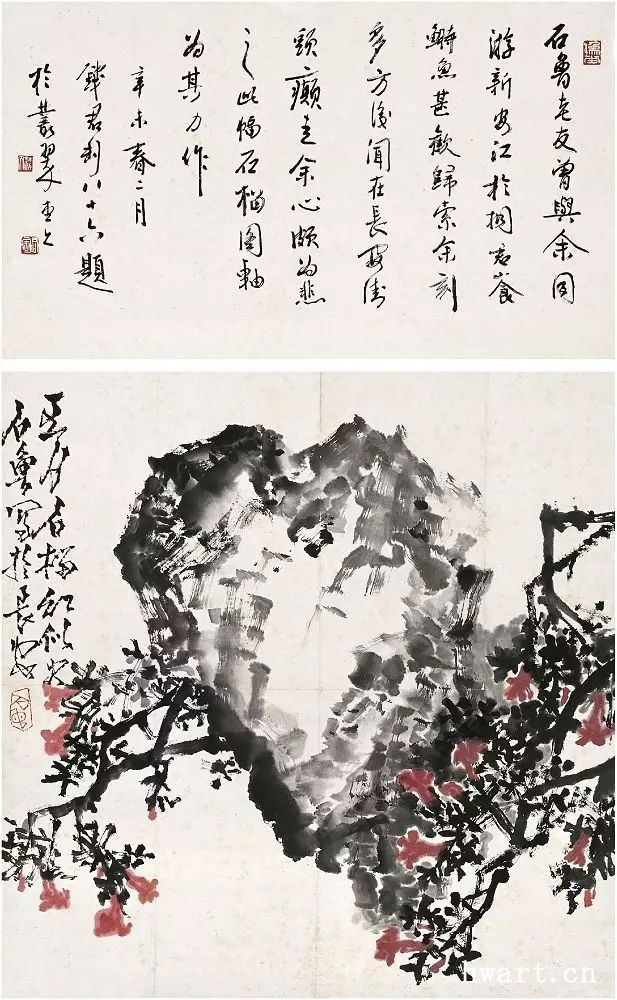 石魯老友曾與余同
游新安江於桐君餐
鰣魚甚歡歸索余刻
多方後聞在長安街
頭癲走余心頗為悲
之此幅石榴圖軸
為其力作
辛未春二月
錢君匋八十六題
於叢翠堂上
五月石榴紅似火
石魯寫於長安
hwart.cn